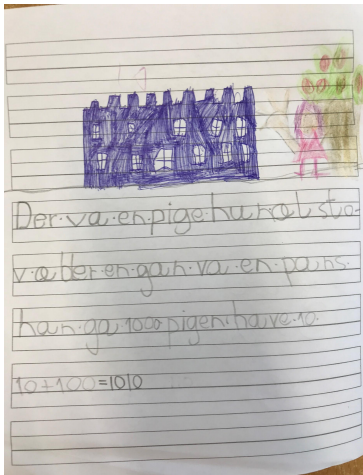 Der·va·en·pige·hun·al·sto-
v·atter·en·gan·va·en·pans·
han·ga·1000·pigen·have·10·
10+100=1010